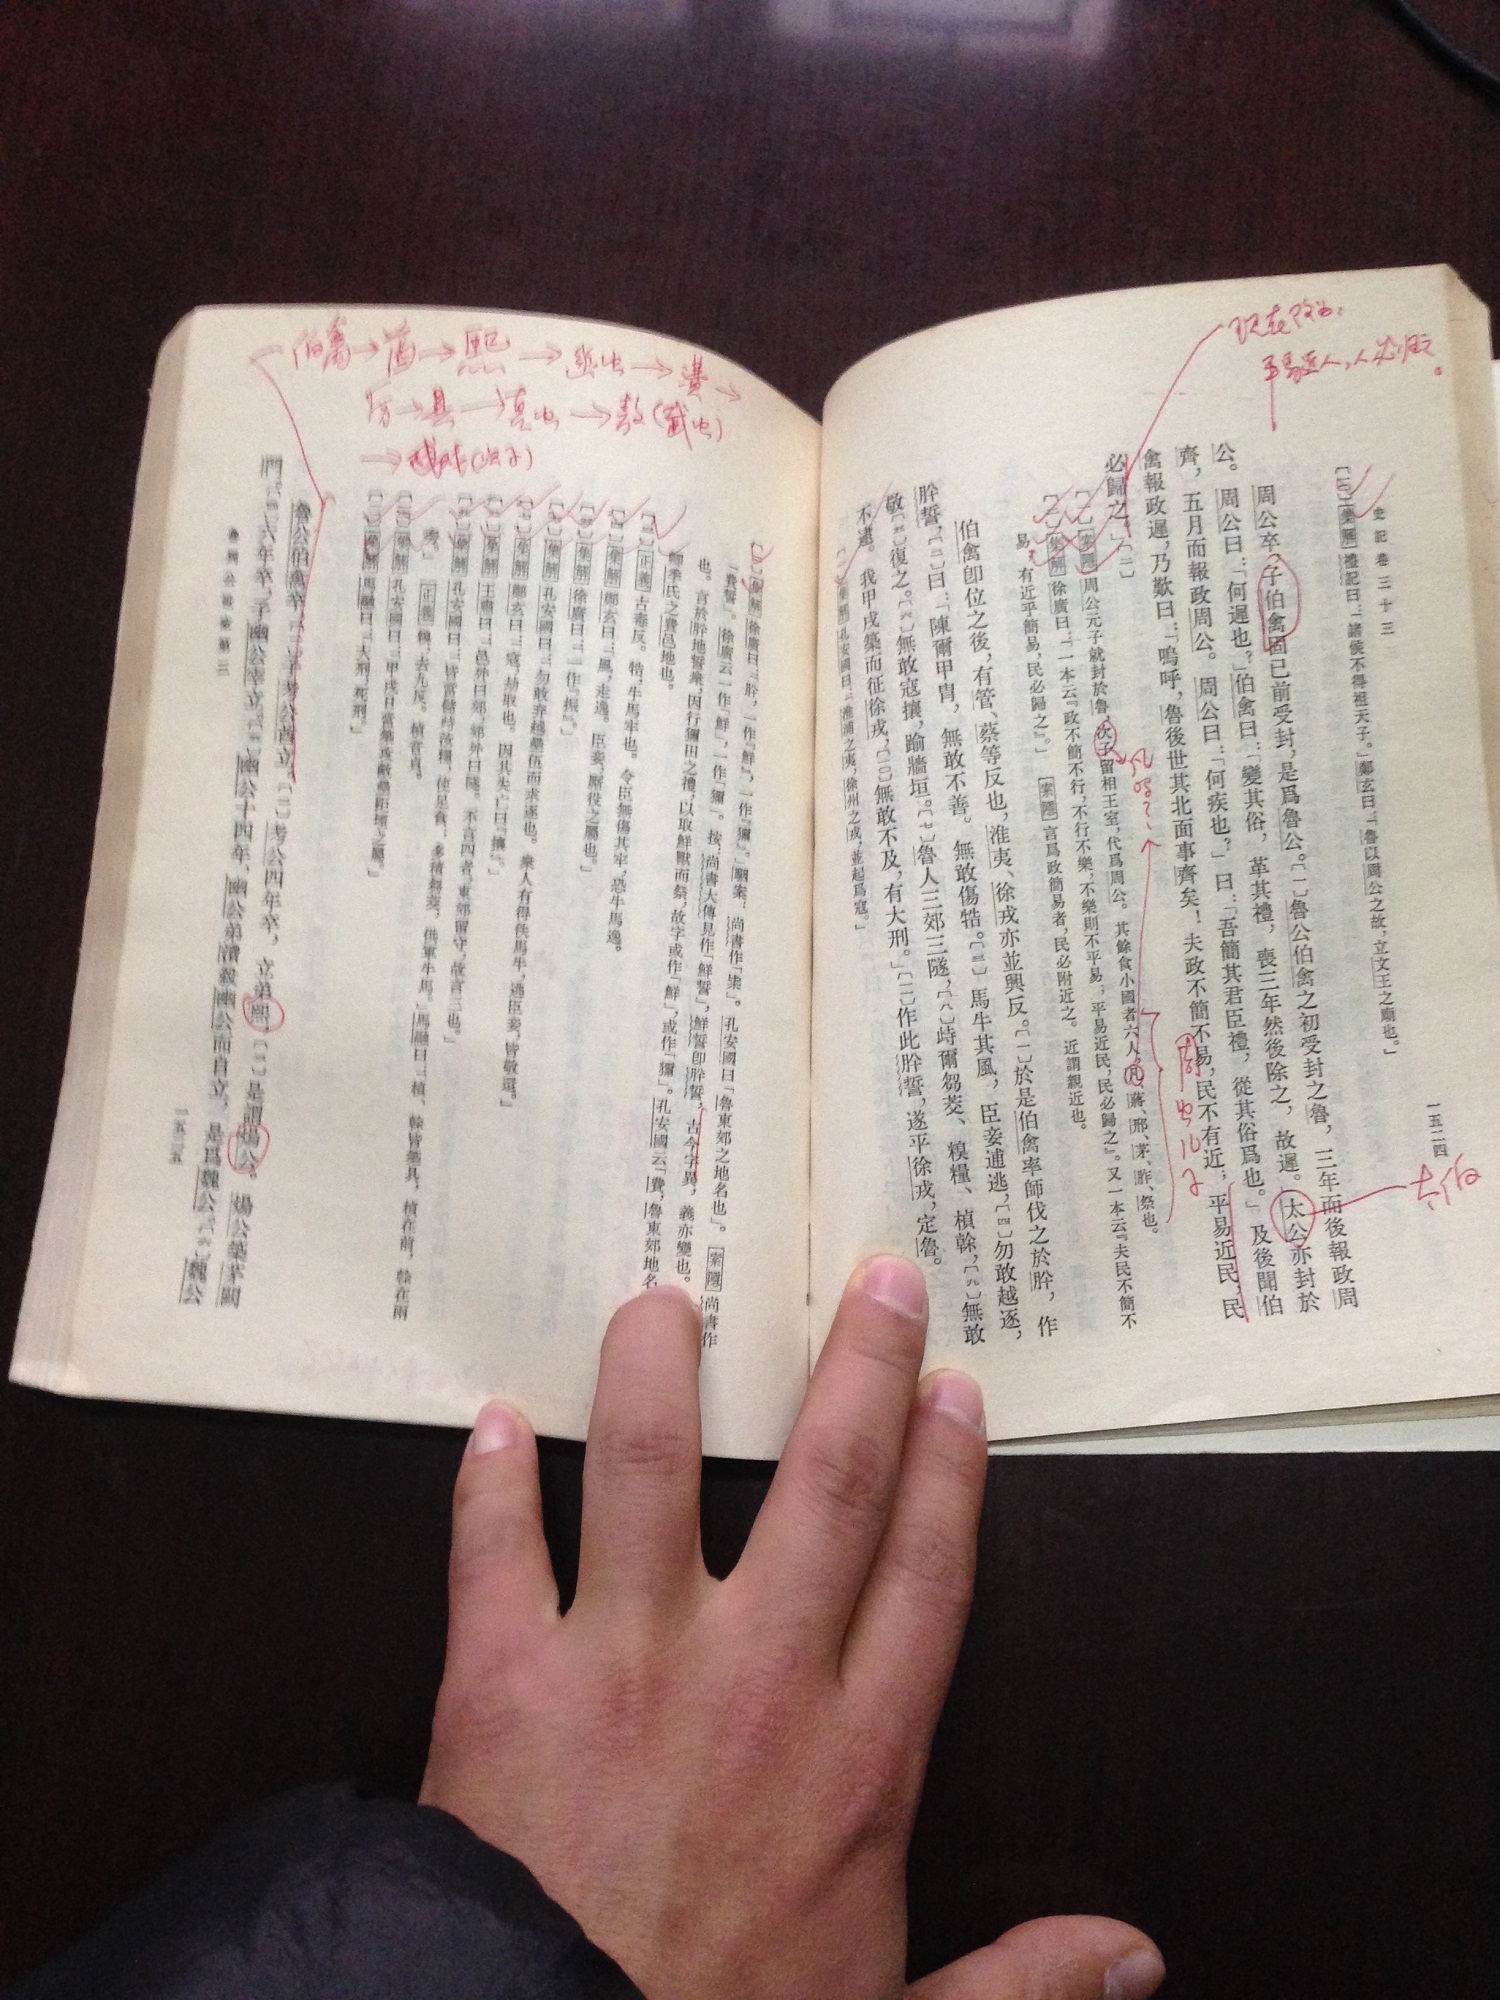 史記卷三十三
一五二四
〔七〕集解禮記曰:「諸侯不得祖天子。」鄭玄曰:「魯以周公之故,立文王之廟也。」
周公卒,子伯禽固已前受封,是爲魯公。〔一〕魯公伯禽之初受封之魯,三年而後報政周
公。周公曰:「何遲也?」伯禽曰:「變其俗,革其禮,喪三年然後除之,故遲。」太公亦封於
齊,五月而報政周公。周公曰:「何疾也?」曰:「吾簡其君臣禮,從其俗爲也。」及後聞伯
禽報政遲,乃歎曰:「嗚呼,魯後世其北面事齊矣!夫政不簡不易,民不有近;平易近民,民
必歸之。」〔二〕
〔一〕索隱周公元子就封於魯,次子留相王室,代爲周公。其餘食小國者六人,凡、蔣、邢、茅、胙、祭也。
〔二〕集解徐廣曰:「一本云『政不簡不行,不行不樂,不樂則不平易;平易近民,民必歸之』。又一本云『夫民不簡不
易,有近乎簡易,民必歸之』。」索隱言爲政簡易者,民必附近之。近謂親近也。
伯禽卽位之後,有管、蔡等反也,淮夷、徐戎亦並興反。〔一〕於是伯禽率師伐之於肸,作
肸誓,〔二〕曰:「陳爾甲冑,無敢不善。無敢傷牿。〔三〕馬牛其風,臣妾逋逃,〔四〕勿敢越逐,
敬〔五〕復之。〔六〕無敢寇攘,踰牆垣。〔七〕魯人三郊三隧,〔八〕峙爾芻茭、糗糧、楨榦,〔九〕無敢
不逮。我甲戌築而征徐戎,〔一0〕無敢不及,有大刑。」〔一一〕作此肸誓,遂平徐戎,定魯。
〔一〕集解孔安國曰:「淮浦之夷,徐州之戎,並起爲寇。」
平易近人,人必歸之。
次子
凡
周公儿子
太伯
伯禽→酋→熙→
〔二〕集解徐廣曰:「肸,一作『鮮』,一作『獮』。」駰案:尚書作「柴」。孔安國曰「魯東郊之地名也」。索隱尚書作
「費誓」。徐廣云一作「鮮」,一作「獮」。按:尚書大傳見作「鮮誓」,鮮誓卽肸誓,古今字異,義亦變也。
也。言於肸地誓衆,因行獮田之禮,以取鮮獸而祭,故字或作「鮮」,或作「獮」。孔安國云「費,魯東郊地名
卽季氏之費邑地也。
〔三〕正義古毒反。牿,牛馬牢也。令臣無傷其牢,恐牛馬逸。
〔四〕集解鄭玄曰:「風,走逸。臣妾,廝役之屬也。」
〔五〕集解徐廣曰:「一作『振』。」
〔六〕集解孔安國曰:「勿敢弃越壘伍而求逐也。衆人有得佚馬牛,逃臣妾,皆敬還。」
〔七〕集解鄭玄曰:「寇,劫取也。因其失亡曰『攘』。」
〔八〕集解王肅曰:「邑外曰郊,郊外曰隧。不言四者,東郊留守,故言三也。」
〔九〕集解孔安國曰:「皆當儲峙汝糧,使足食;多積芻茭,供軍牛馬。」馬融曰:「楨、榦皆築具,楨在前,榦在兩
旁。」正義糗,去九反。楨音貞。
〔一0〕集解孔安國曰:「甲戌日當築攻敵壘距堙之屬。」
〔一一〕集解馬融曰:「大刑,死刑。」
魯公伯禽卒,〔一〕子考公酋立。〔二〕考公四年卒,立弟熙,〔三〕是謂煬公。煬公築茅闕
門。〔四〕六年卒,子幽公宰立。〔五〕幽公十四年,幽公弟潰殺幽公而自立,是爲魏公。〔六〕魏公
魯周公世家第三
一五二五